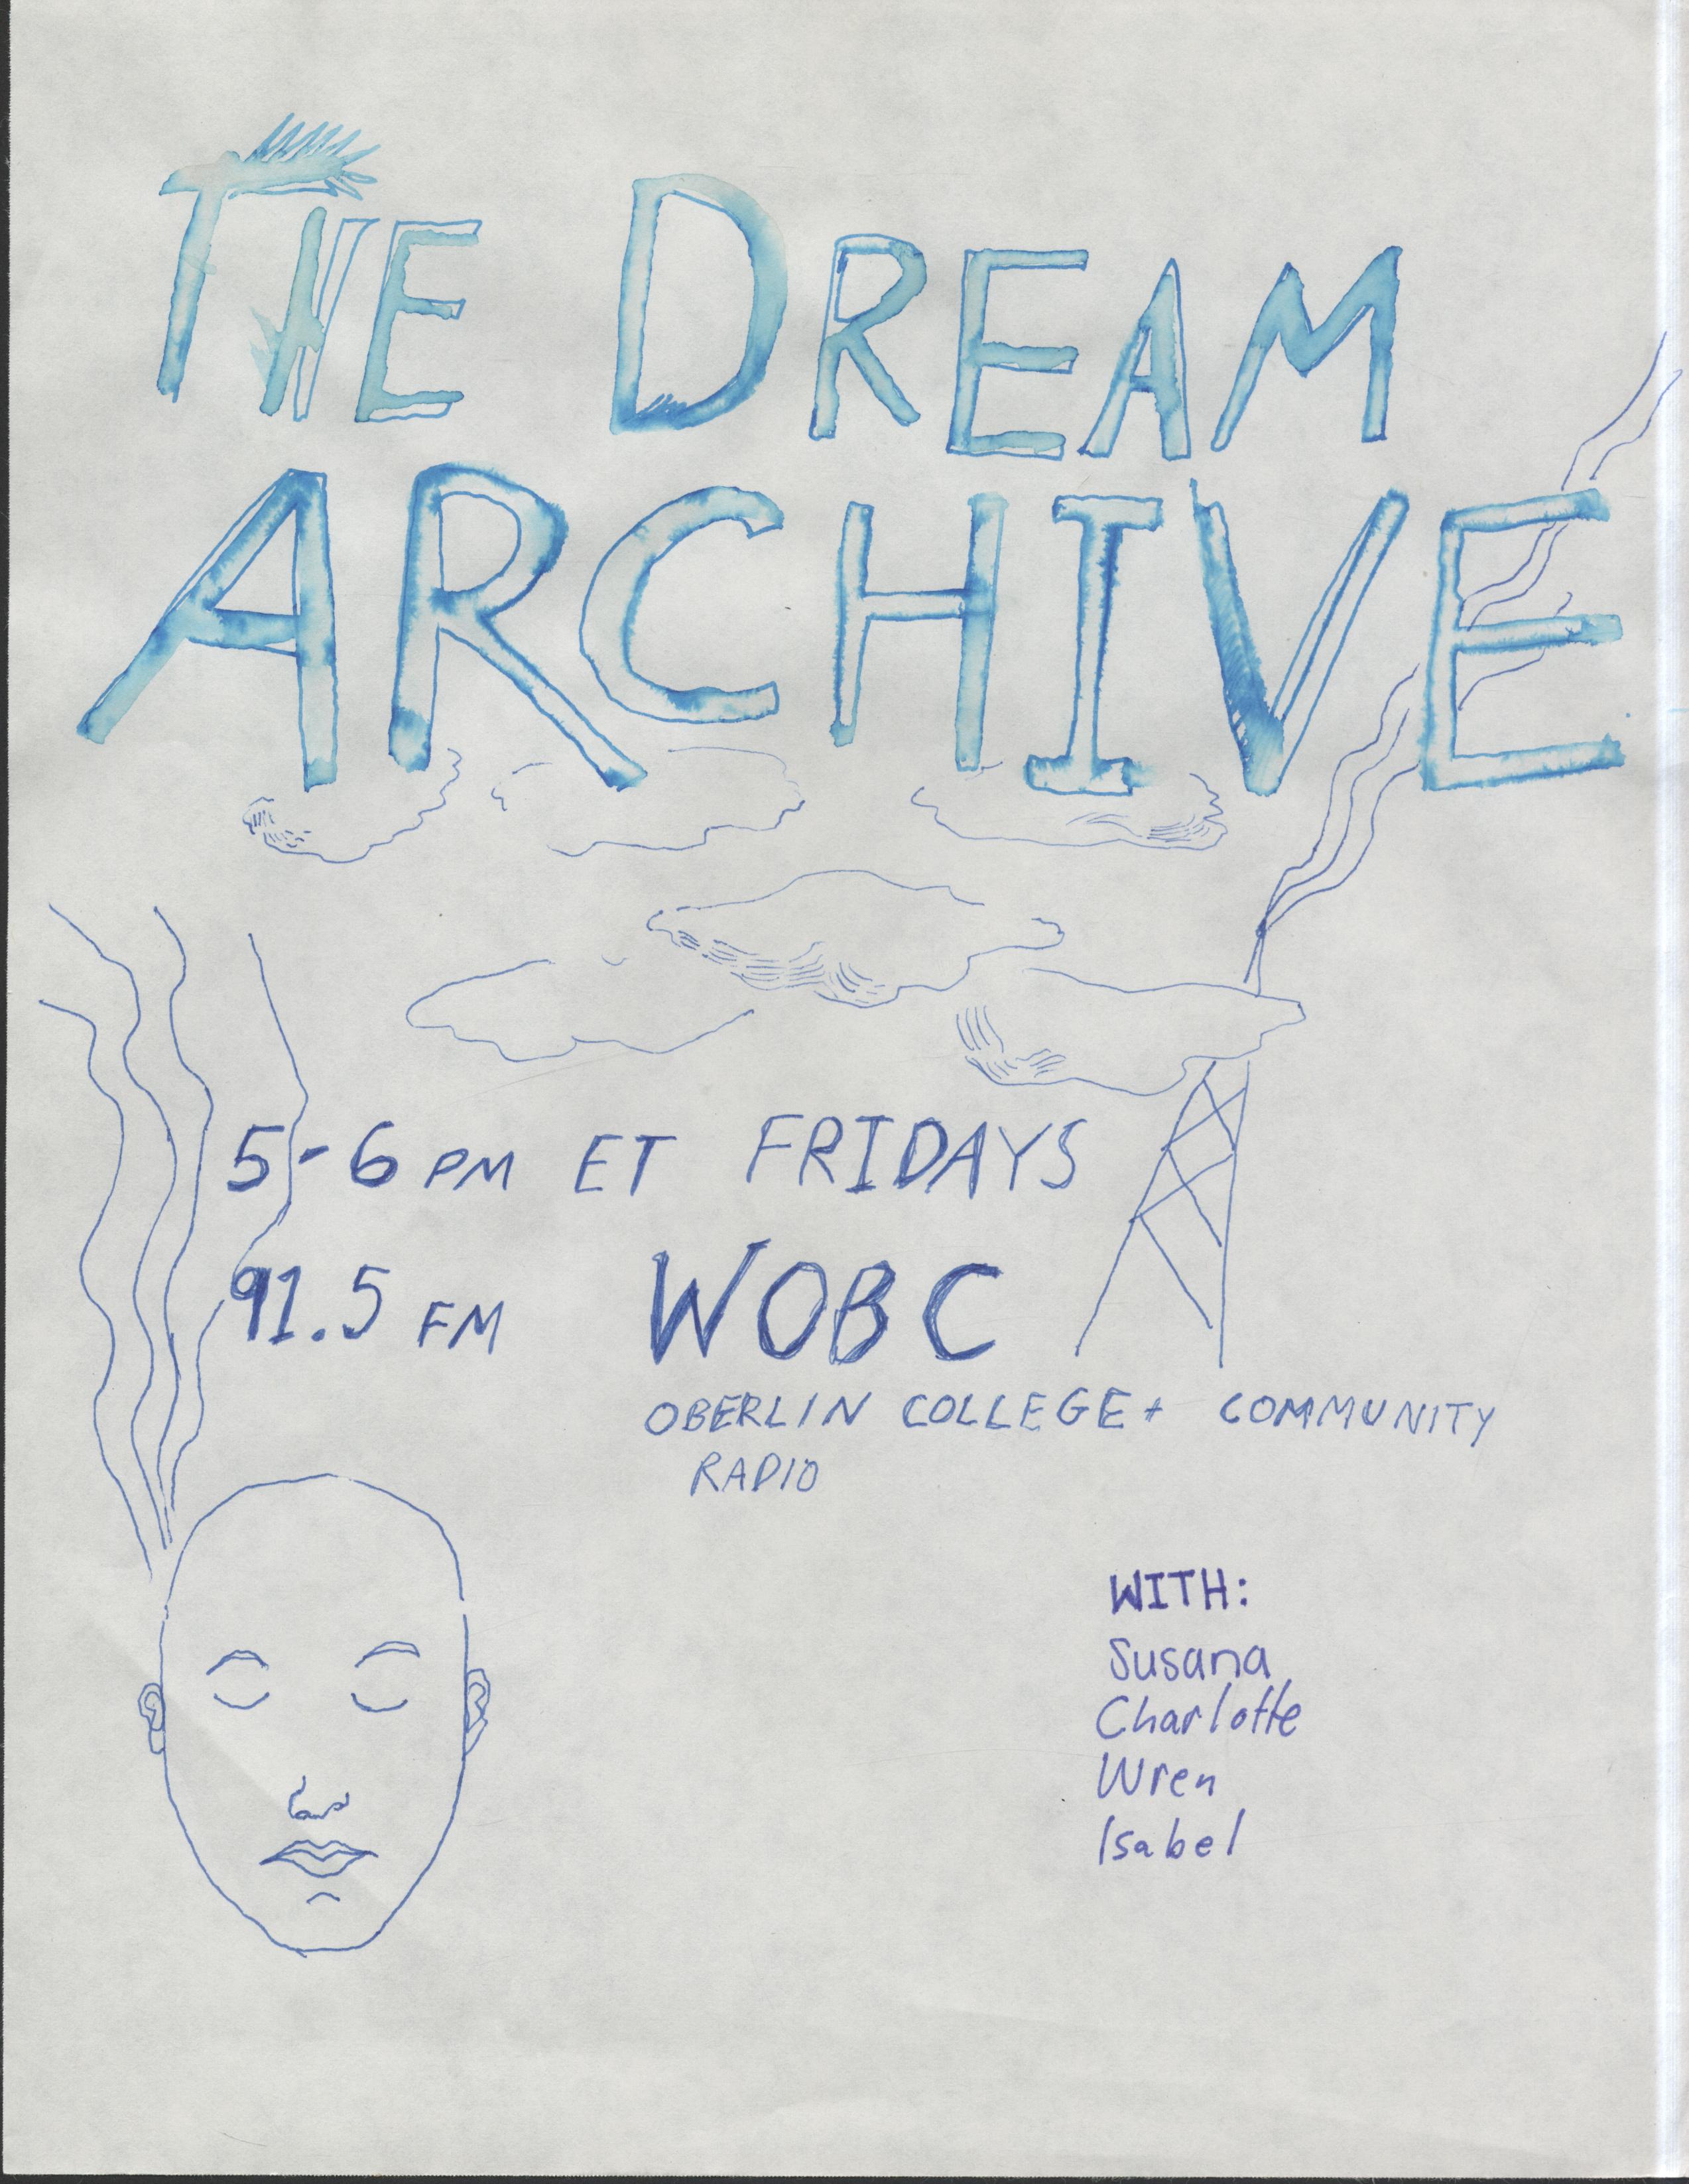 THE DREAM
ARCHIVE
5-6 PM ET FRIDAYS
91.5 FM WOBC
OBERLIN COLLEGE + COMMUNITY
RADIO
WITH:
Susana
Charlotte
Wren
Isabel